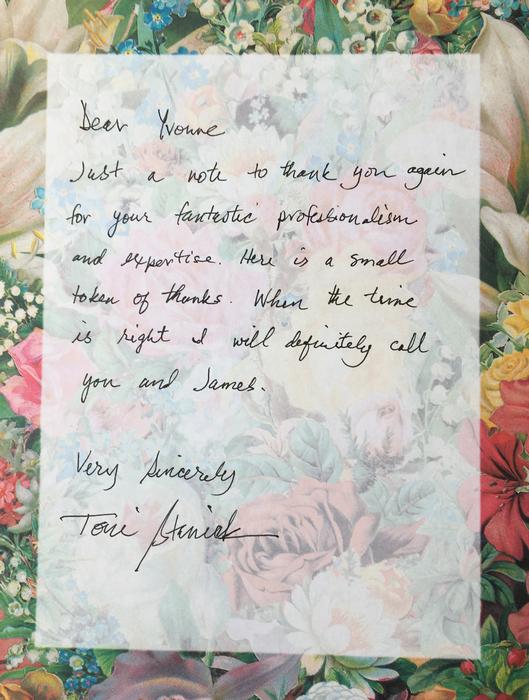 Dear Yvonne
Just a note to thank you again
for your fantastic professionalism
and expertise. Here is a small
token of thanks. When the time
is right I will definitely call
you and James.
Very Sincerely
Toni